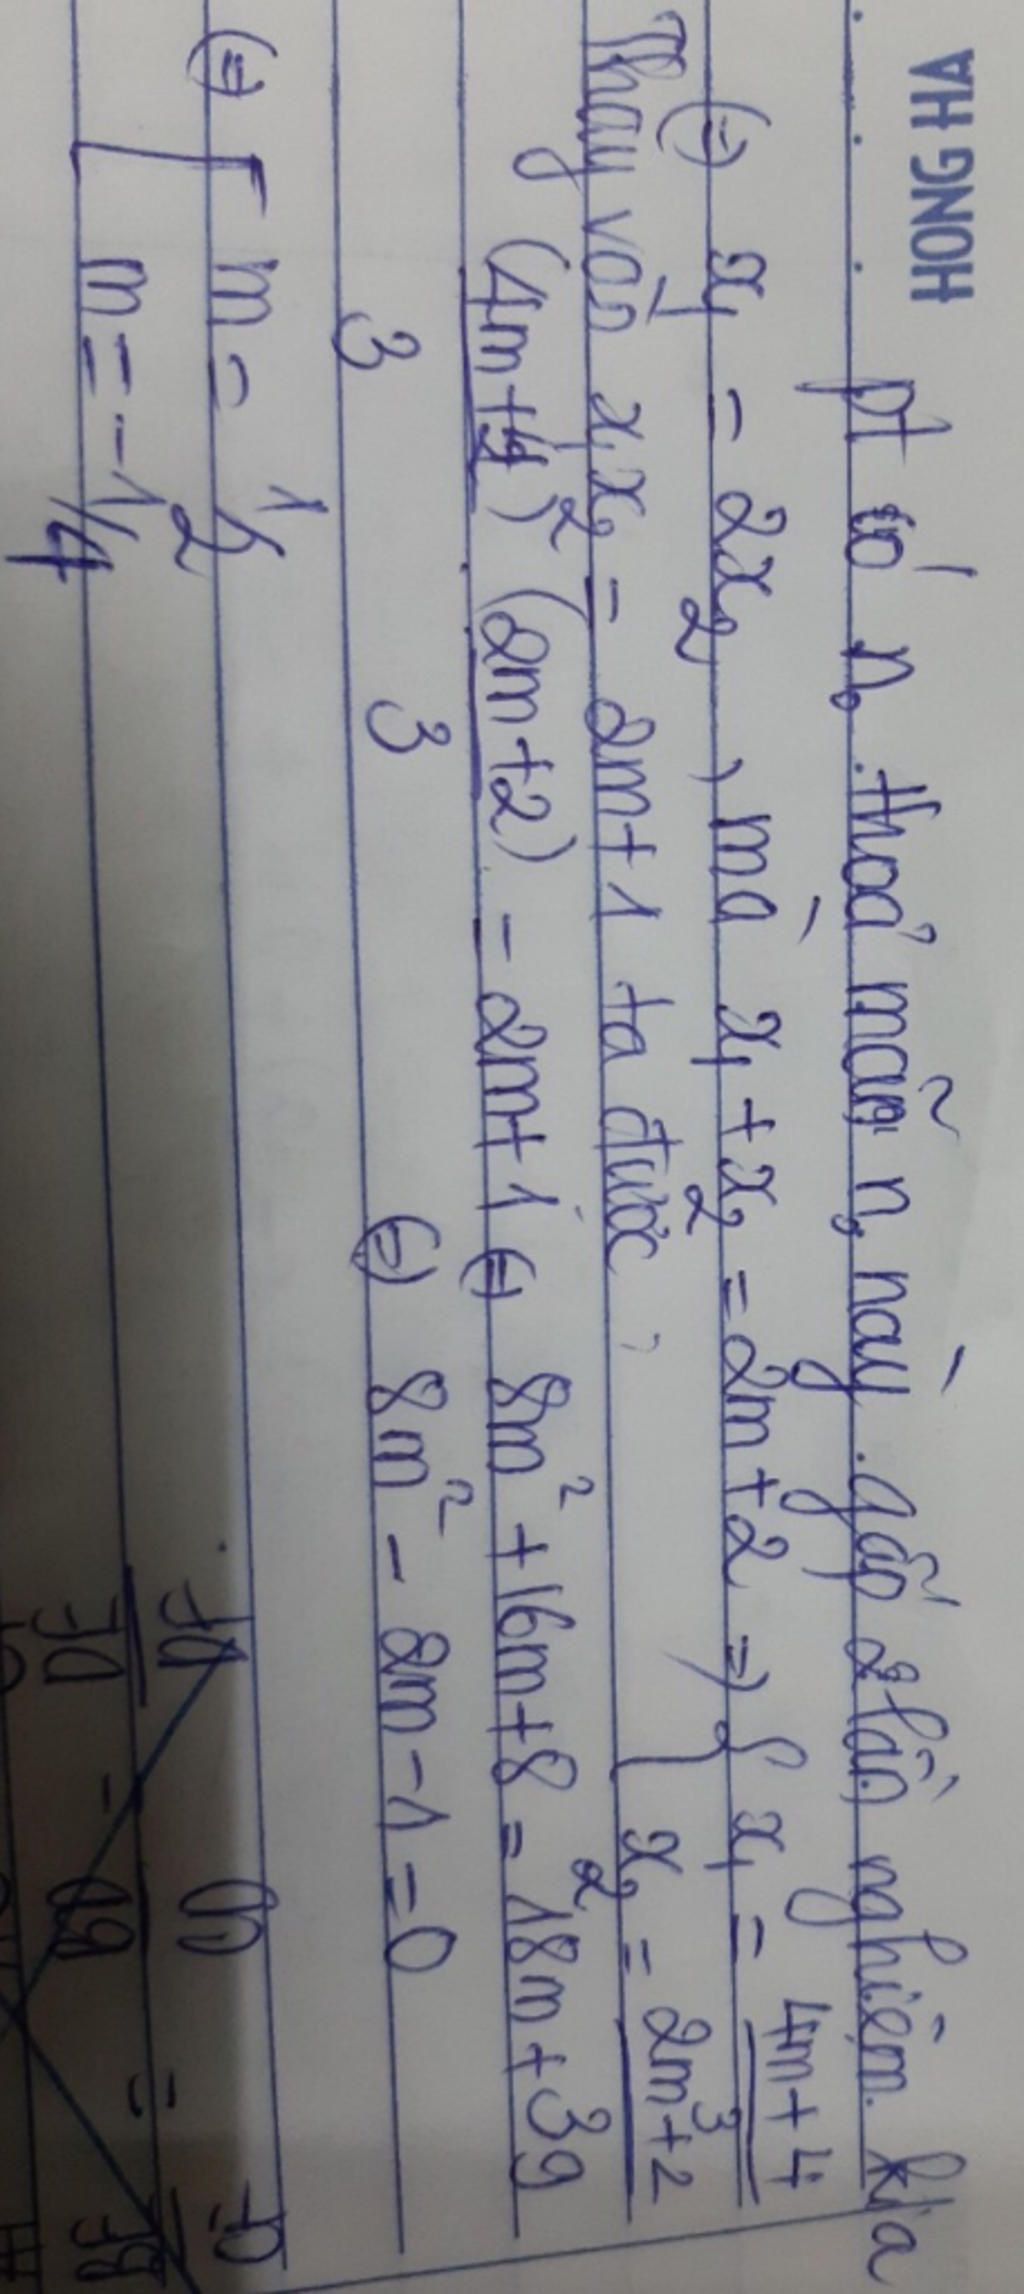 HONG HA
pt có n₀ thoả mãn n₀ này gấp 2 lần nghiệm kia
(=) x₁ = 2x₂, mà x₁ + x₂ = 2m + 2 => { x₁ = 4m + 4 / 3
x₂ = 2m + 2 / 3
Thay vào x₁x₂ = 2m + 1 ta được
(4m + 4 / 3) (2m + 2 / 3) = 2m + 1 (=) 8m² + 16m + 8 = 18m + 9
(=) 8m² - 2m - 1 = 0
(=) [ m = 1/2
m = -1/4